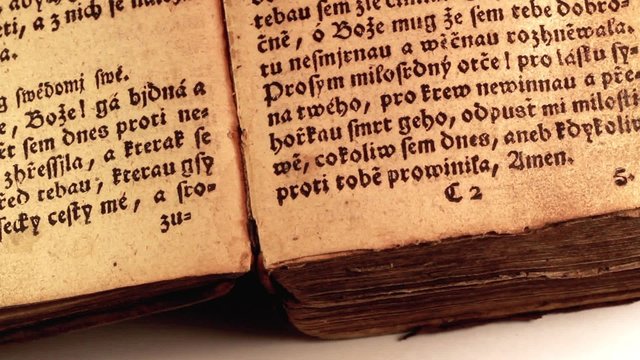 eti, a z nich se
a.
g swědomj swé.
e, Bože! gá bjdná a
sem dnes proti ne-
zhřessyla, a kterak se
řed tebau, kterau gsy
secky cesty mé, a sro-
zu-
tebau sem zle
čně, ó Bože mug že sem tebe dobro-
tu nesmjrnau a wěčnau rozhněwala.
Prosym milosrdný otče! pro lásku sy-
na twého, pro krew newinnau a přě-
hořkau smrt geho, odpusť mi milosti-
wě, cokoliw sem dnes, aneb kdykoliw
proti tobě prowinila, Amen.
C 2
5.